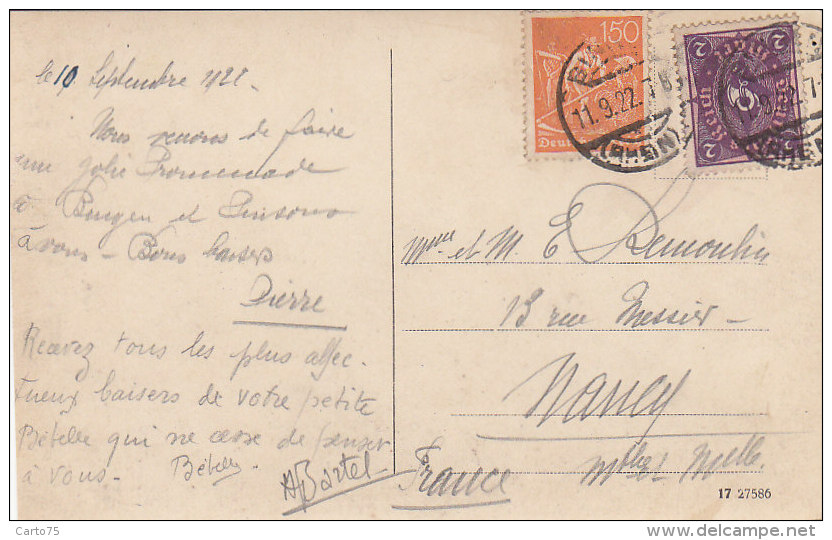 le 10 Septembre 1922 -
Nous venons de faire
une jolie Promenade
à Bingen et Pensons
à vous - Bons baisers
Pierre
Recevez tous les plus affec-
tueux baisers de votre petite
Bételle qui ne cesse de penser
à vous - Bételle -
Bartel
150
11.9.22.7
(RHEIN)
2
Mme et M. E Remoulin
13 rue Messier -
Nancy
Mthe Mlle.
France
17 27586
Carto75
www.delcampe.net